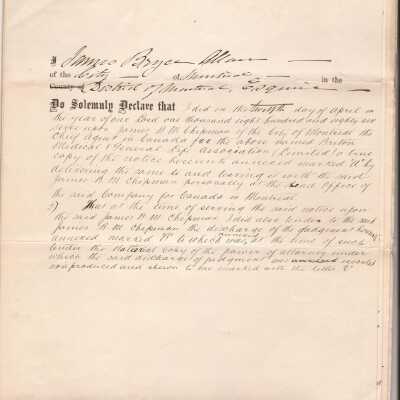 I James Bryce Allan
of the City of Montreal in the
County of District of Montreal, Esquire
Do Solemnly Declare that I did on the twelfth day of April in
the year of our Lord one thousand eight hundred and eighty six
serve upon James B. M. Chipman of the City of Montreal the
Chief Agent in Canada for the above named Briton
Medical & General Life Association (Limited) a true
copy of the notice hereunto annexed marked "A" by
delivering the same to and leaving it with the said
James B. M. Chipman personally at the head Office of
the said Company for Canada in Montreal
2) That at the time of serving the said notice upon
the said James B. M. Chipman I did also tender to the said
James B. M. Chipman the discharge of the judgment hereunto
annexed marked to which was annexed at the time of such
tender the notarial copy of the power of attorney under
which the said discharge of judgment was executed
now produced and shewn to me marked with the letter